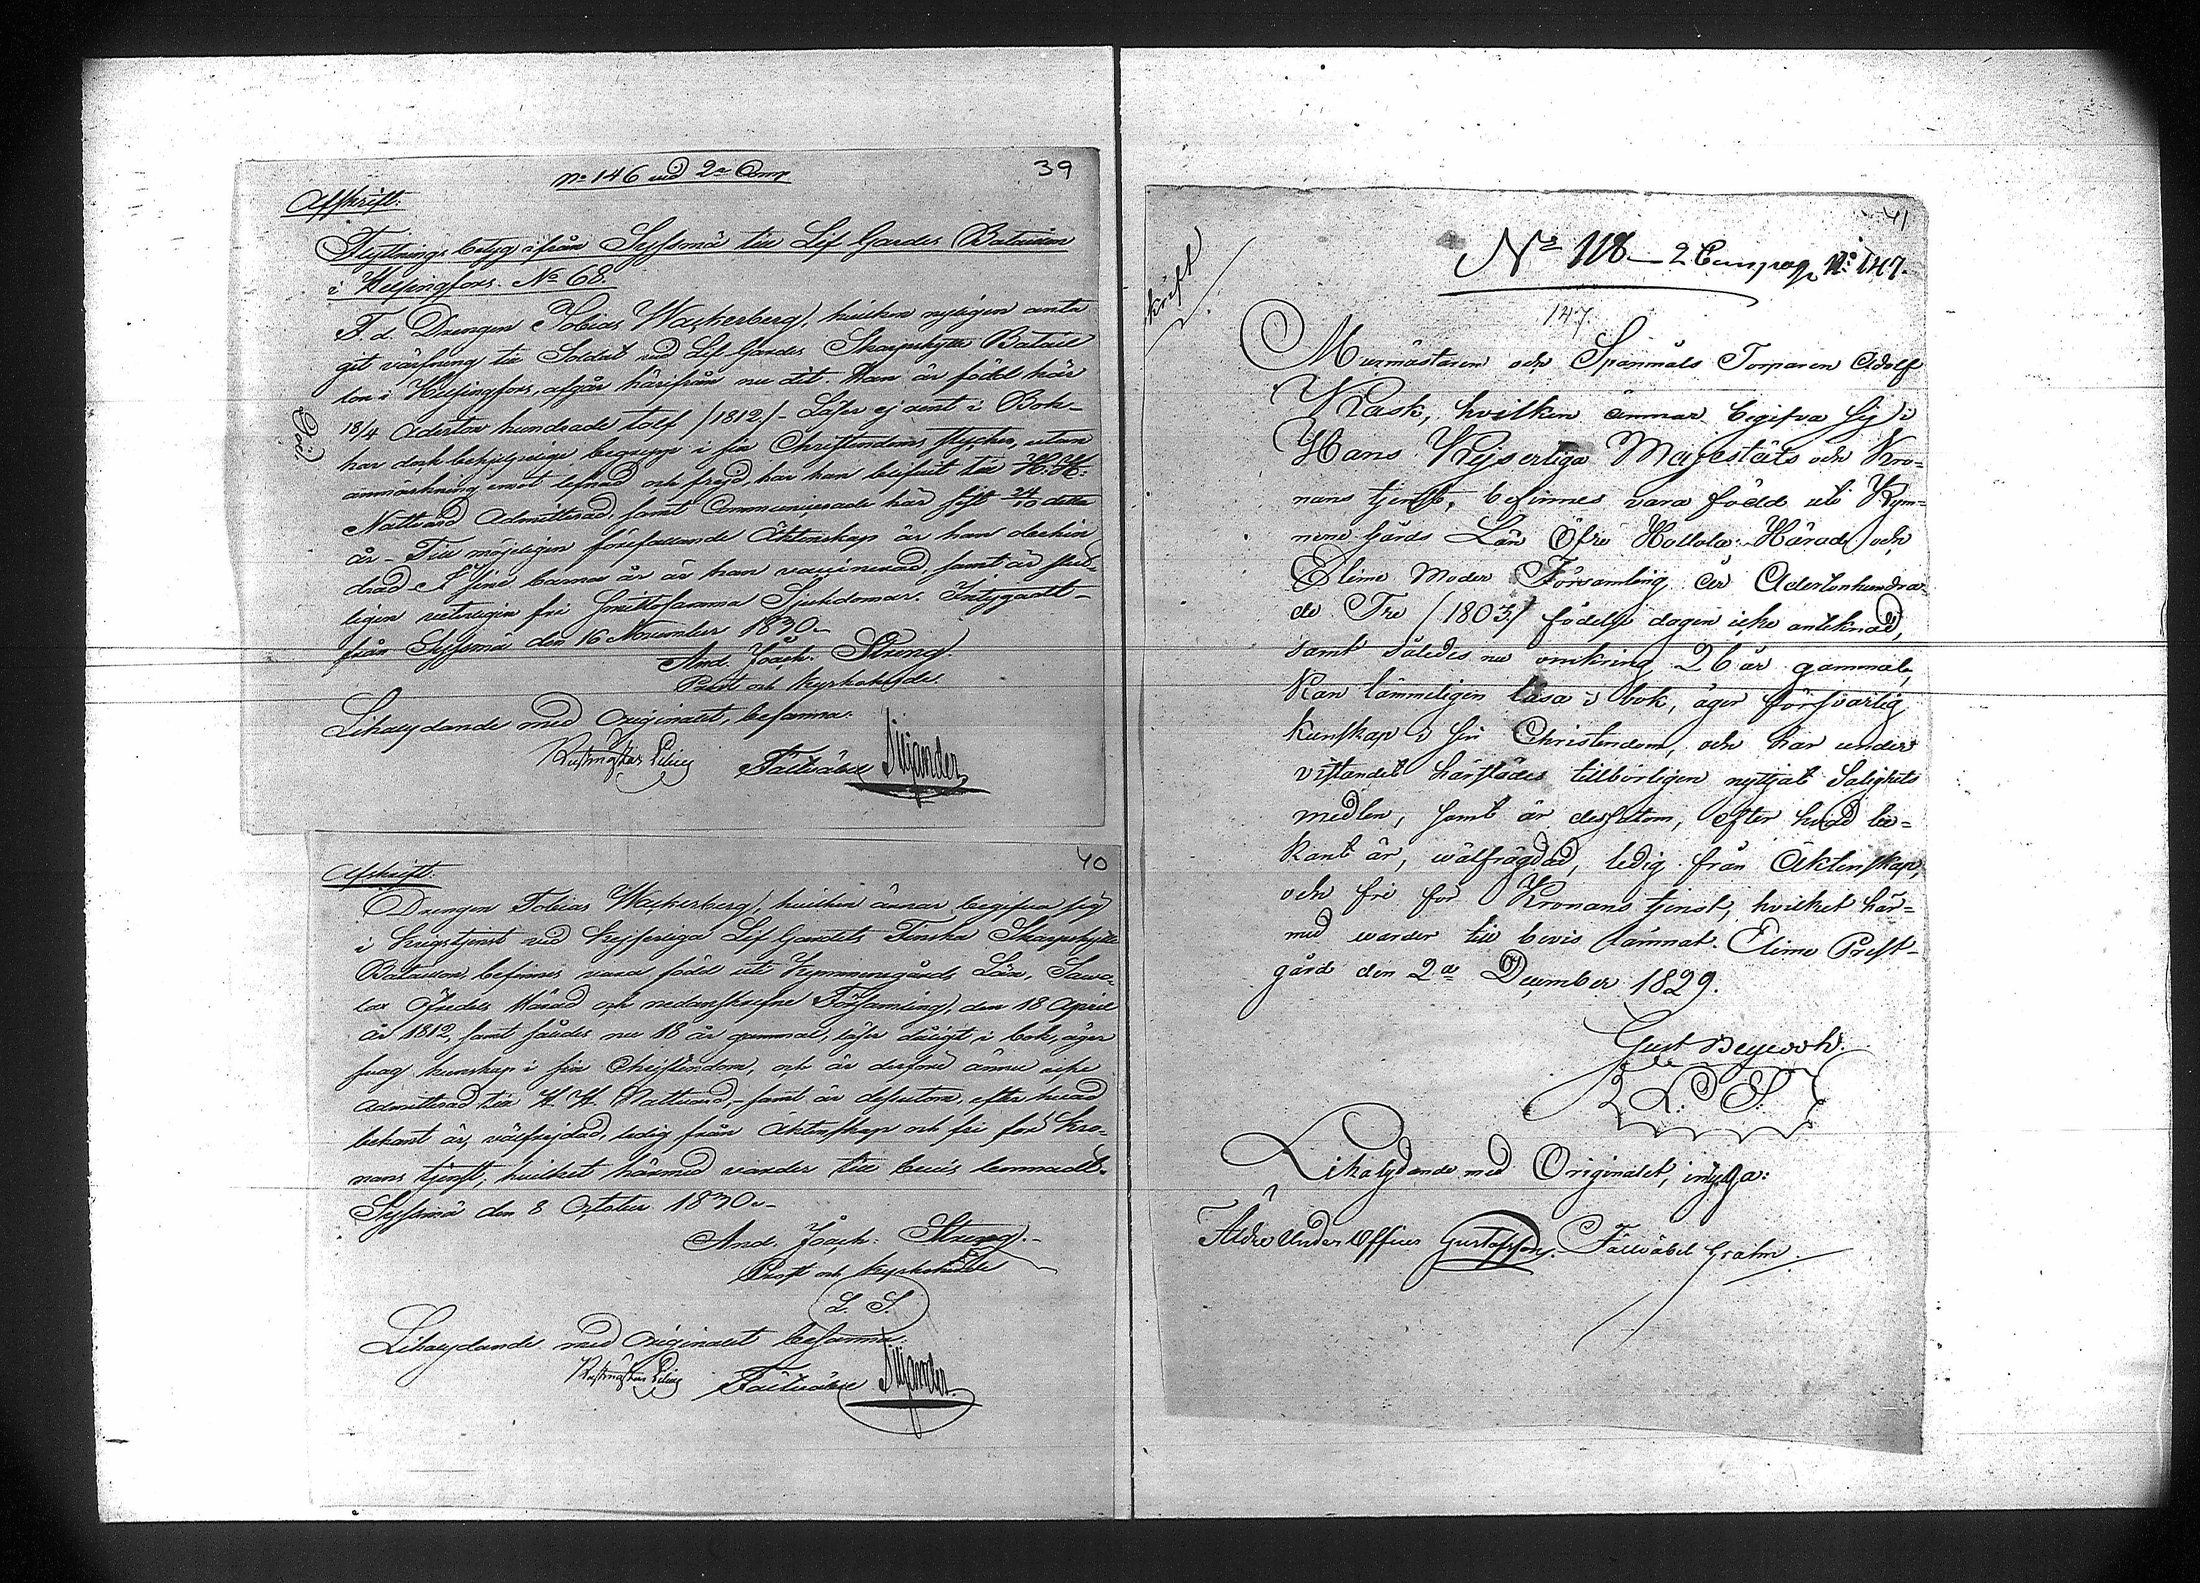 39
No 146 vid 2a Comp
Afskrift.
Flyttnings betyg ifrån Sysmä till Lif Gardes Bataillon
i Helsingfors. No 68.
F. d. Drengen Tobias Wackerberg, hvilken nyligen anta
git värfning till Soldat vid Lif Gardes Skarpskytte Batail
lon i Helsingfors, afgår härifrån nu dit. Han är född här
18/4 Adertonhundrade tolf /1812/ - Läser ej rent i Bok -
har dock behjelpeligt begrepp i sin Christendoms stycken, utan
anmärkning emot lefnad och frejd, har han blifvit till H. H.
Nattvard Admitterad, samt Communicerade här sist 24/10 detta
år - Till möjeligen förefallande Äktenskap är han
drad - I sina barna år är han vaccinerad, samt är
ligen veterligen fri smittosamma Sjukdomar. Intygar
från Sysmä den 16 November 1830 -
And. Joach. Streng.
Prost och Kyrkoherde.
Likalydande med Originalet, befanna:
Rustmästar Fältväbel Siljander
40
Afskrift.
Drengen Tobias Wackerberg, hvilken ämnar begifva sig
i krigstjenst vid Kejserliga Lif Gardets Finska Skarpskytte
Bataillon, befinnes vara född uti Kymmenegårds Län, Sawo-
lax Öfredels Härad och nedanskrefne Församling, den 18 April
år 1812, samt således nu 18 år gammal, läser dåligt i bok, äger
svag kunskap i sin Christendom, och är derföre ännu icke
admitterad till H. H. Nattvard, - samt är dessutom, efter hvad
bekant är, välfrejdad, ledig från Äktenskap och fri för Kro-
nans tjenst, hvilket härmed varder till bevis lemnadt.
Sysmä den 8 October 1830 -
And. Joach. Streng.
Prost och Kyrkoherde
L. S.
Likalydande med Originalet befanna
Rustmästar Fältväbel Siljander.
41
No 118 - 2 Compag No 147.
147.
Murmästaren och Spanmåls Torparen Adolf
Rask, hvilken ämnar begifva sig i
Hans Kejserliga Majestäts och Kro-
nans tjenst, befinnes vara född uti Kym-
mene Gårds Län Öfre Hollola Härad och
Elime Moder Församling år Adertonhundra-
de Tre /1803/ födelse dagen icke anteknad,
samt således nu omkring 26 år gammal,
Kan lämmeligen läsa i bok, äger försvarlig
kunskap i sin Christendom, och har under
vistandet härstädes tillbörligen nyttjat Salighets
medlen, samt är dessutom, efter hvad be-
kant är, wälfrägdad, ledig från Äktenskap,
och fri för Kronans tjenst, hvilket här-
med warder till bevis lämnat. Elime Prest-
gård den 2a December 1829.
Gust
L. S.
Likalydande med Originalet, intyga:
Äldre Under Officer Gustafsson. Fältväbel Grahn.